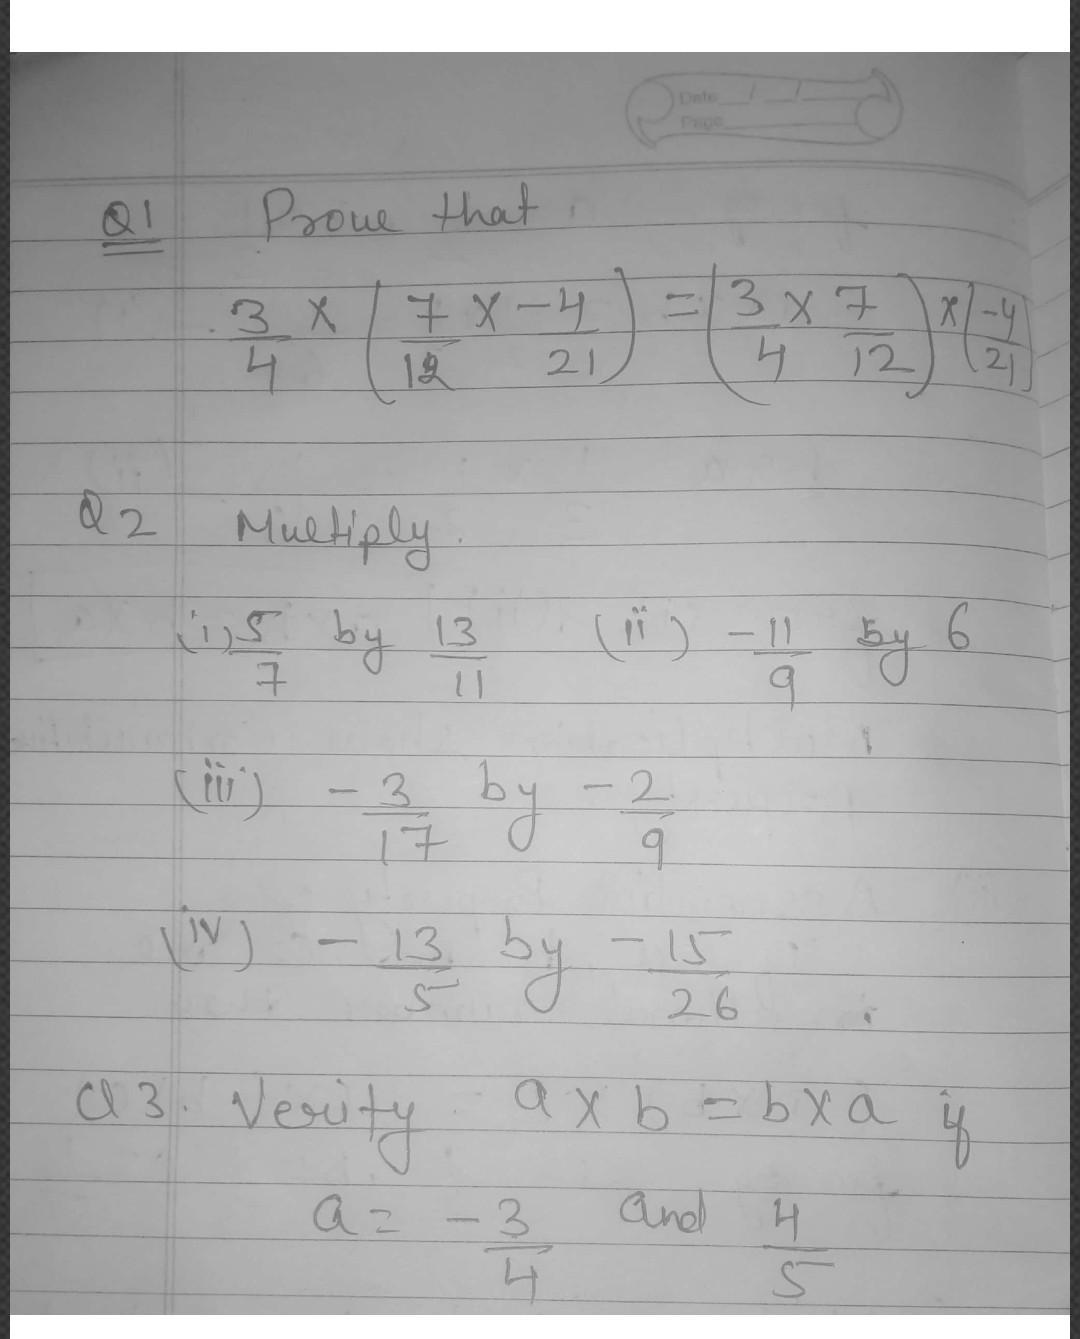 Date
Page
Q1 Prove that
3/4 × (7/12 × -4/21) = (3/4 × 7/12) × (-4/21)
Q2 Multiply.
(i) 5/7 by 13/11 (ii) -11/9 by 6
(iii) -3/17 by -2/9
(iv) -13/5 by -15/26
Q3. Verify a × b = b × a if
a = -3/4 and 4/5